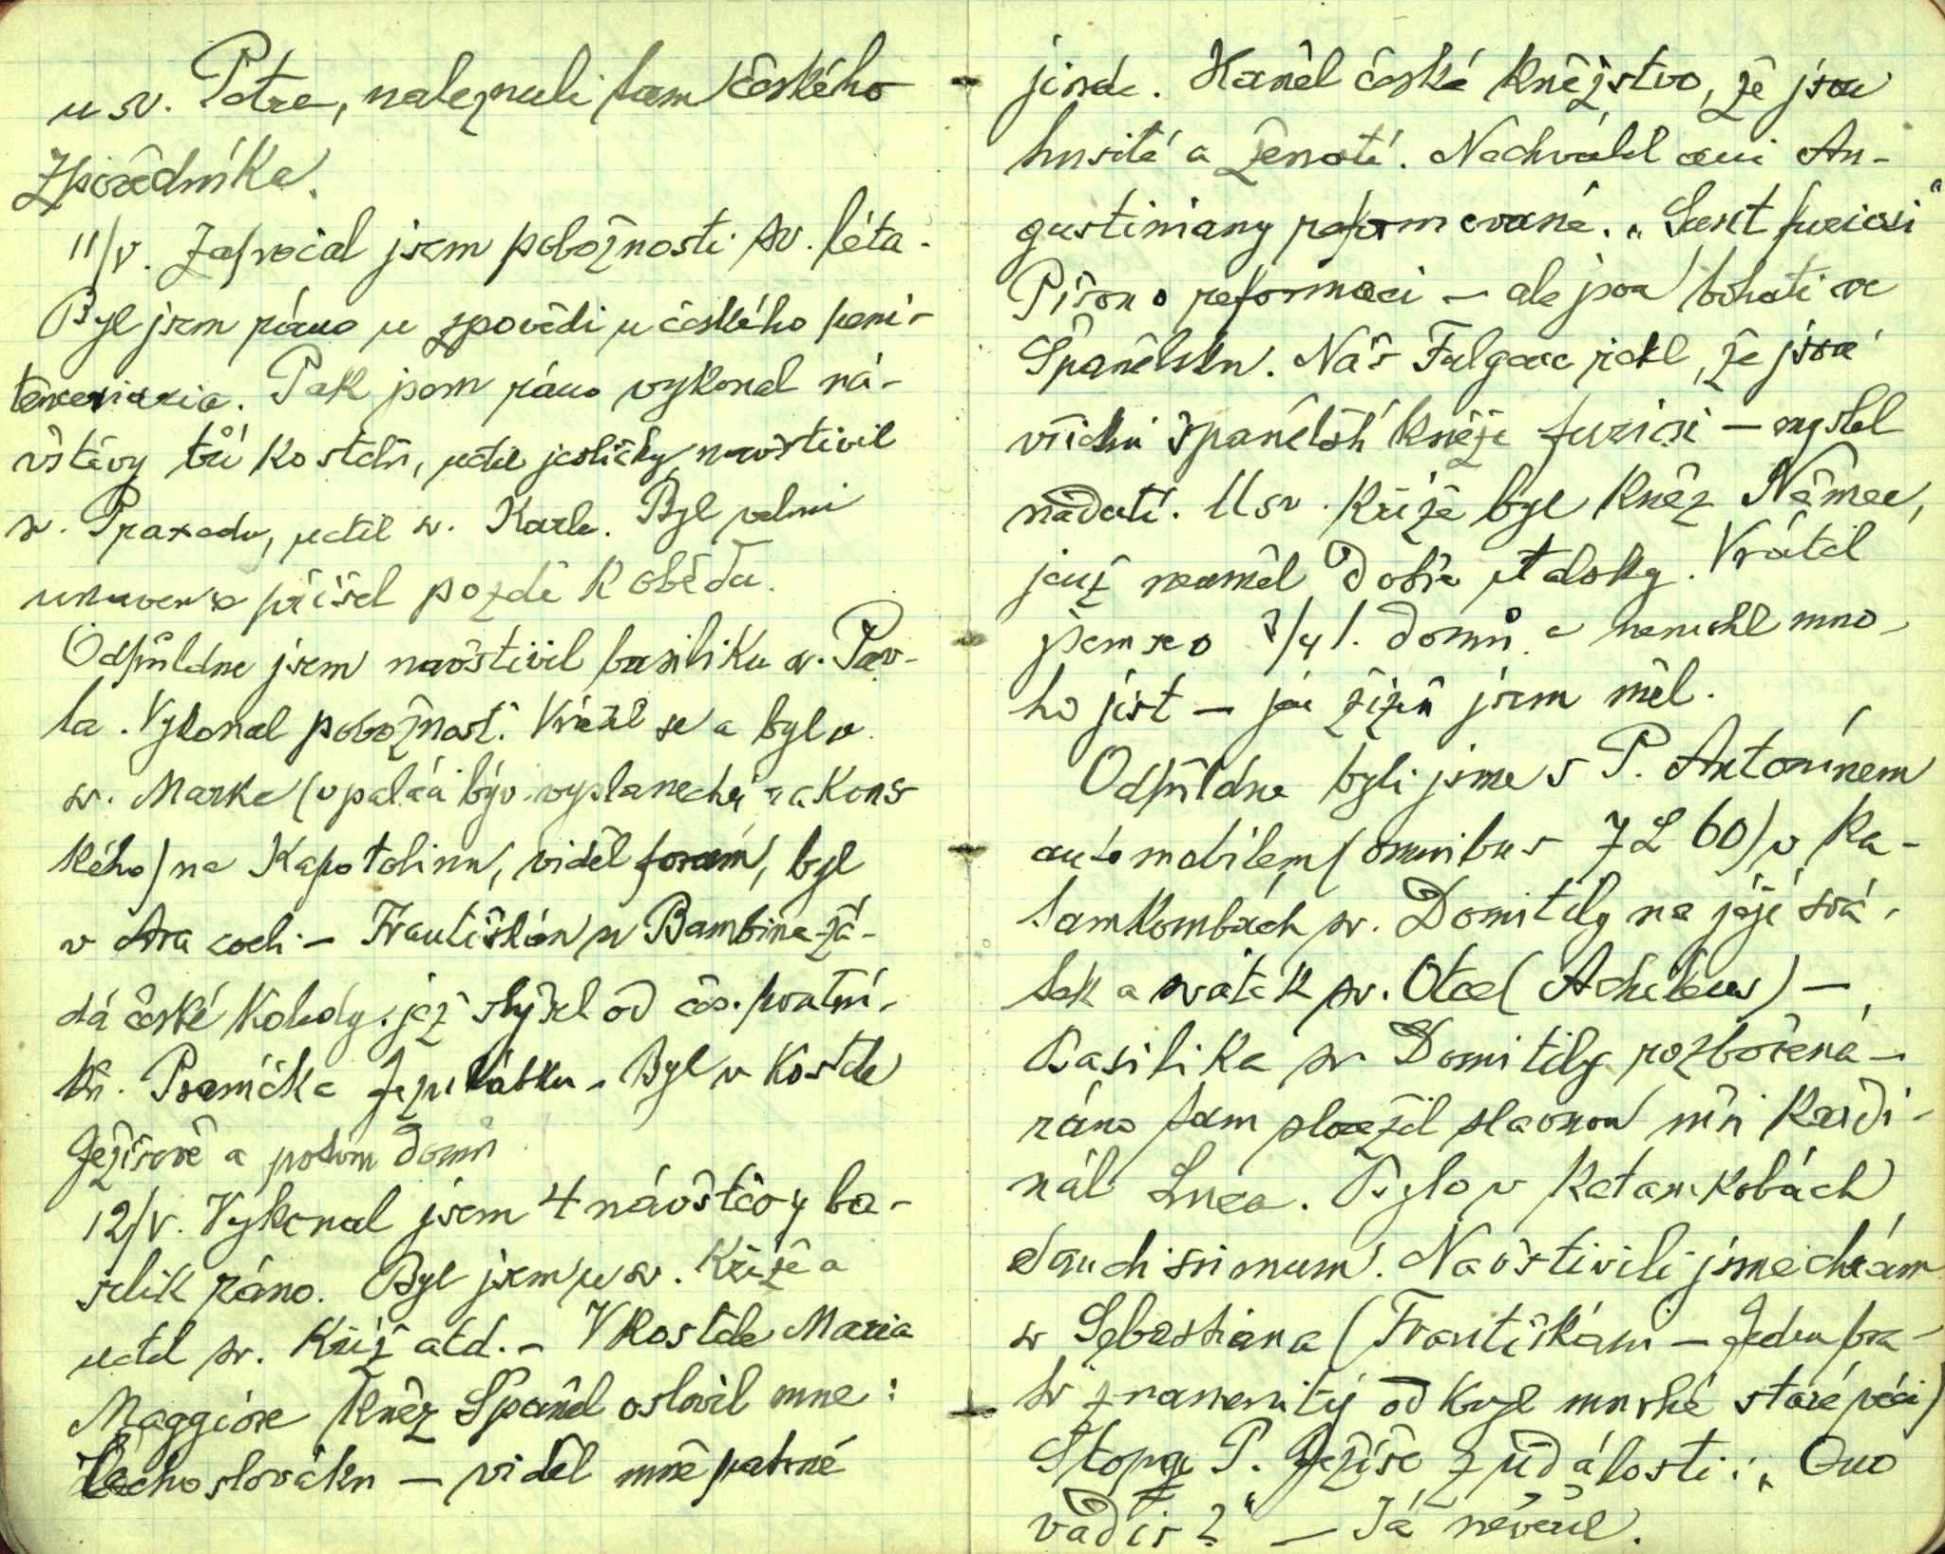 u sv. Petra, naleznuli tam českého
zpovědníka.
11/V. Započal jsem pobožnosti sv. léta.
Byl jsem ráno u zpovědi u českého peni-
tenciaria. Pak jsem ráno vykonal ná-
vštěvy tří kostelů, uctil jesličky navštívil
sv. Praxedu, uctil sv. Karla. Byl velmi
unaven a přišel pozdě k obědu.
Odpůldne jsem navštívil basiliku sv. Pav-
la. Vykonal pobožnost. Vrátil se a byl v
sv. Marka (v paláci býv. vyslanectví rakous-
kého) na Kapitolinu, viděl forum, byl
v Ara coeli – Františkán u Bambina žá-
dá české koledy, jež slyšel od čes. poutní-
ků. Pramička Jezulátku. Byl v kostele
Ježíšově a potom domů
12/V. Vykonal jsem 4 návštěvy ba-
silik ráno. Byl jsem u sv. Kříže a
uctil sv. Kříž atd. – V kostele Maria
Maggiore kněz Španěl oslovil mne:
Čechoslováku – viděl mně patrné
jinde. Haněl české kněžstvo, že jsou
husité a ženatí. Nechválil ani Au-
gustiniany reformované. „Sunt furiosi“
Píšou o reformaci – ale jsou bohatí ve
Španělsku. Náš Fulgenc řekl, že jsou
všichni španělští kněží furiosi – myslel
nadutí. U sv. Kříže byl kněz Němec,
jenž neuměl dobře italsky. Vrátil
jsem se o 3/4 1. domů a nemohl mno-
ho jíst – jen žízeň jsem měl.
Odpůldne byli jsme s P. Antonínem
automobilem (omnibus 7 L 60) v Ka-
tamkombách sv. Domitily na její svá-
tek a svátek sv. Otce (Achileus) –
Basilika sv. Domitily rozbořená –
ráno tam sloužil slavnou mši kardi-
nál Luca. Bylo v katamkobách
Navštívili jsme chrám
sv Sebastiana (Františkáni – Jeden bra-
tr znamenitý odkryl mnohé staré věci)
Stopy P. Ježíše z události: „Quo
vadis?“ – Já nevěřil.